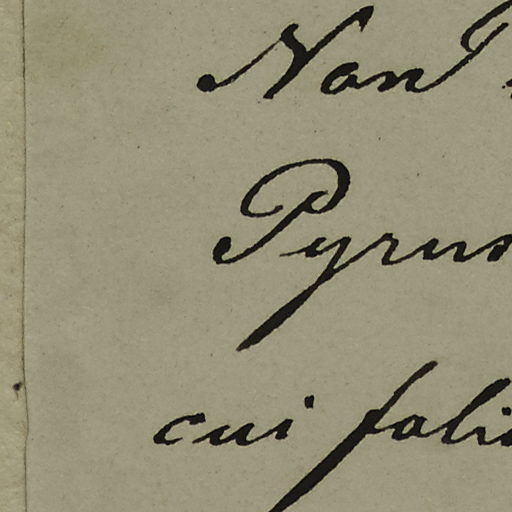 Non
Pyrus
cui foli